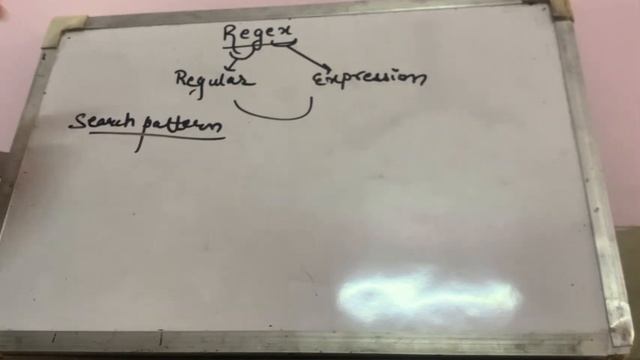 Regex
Regular Expression
Search pattern